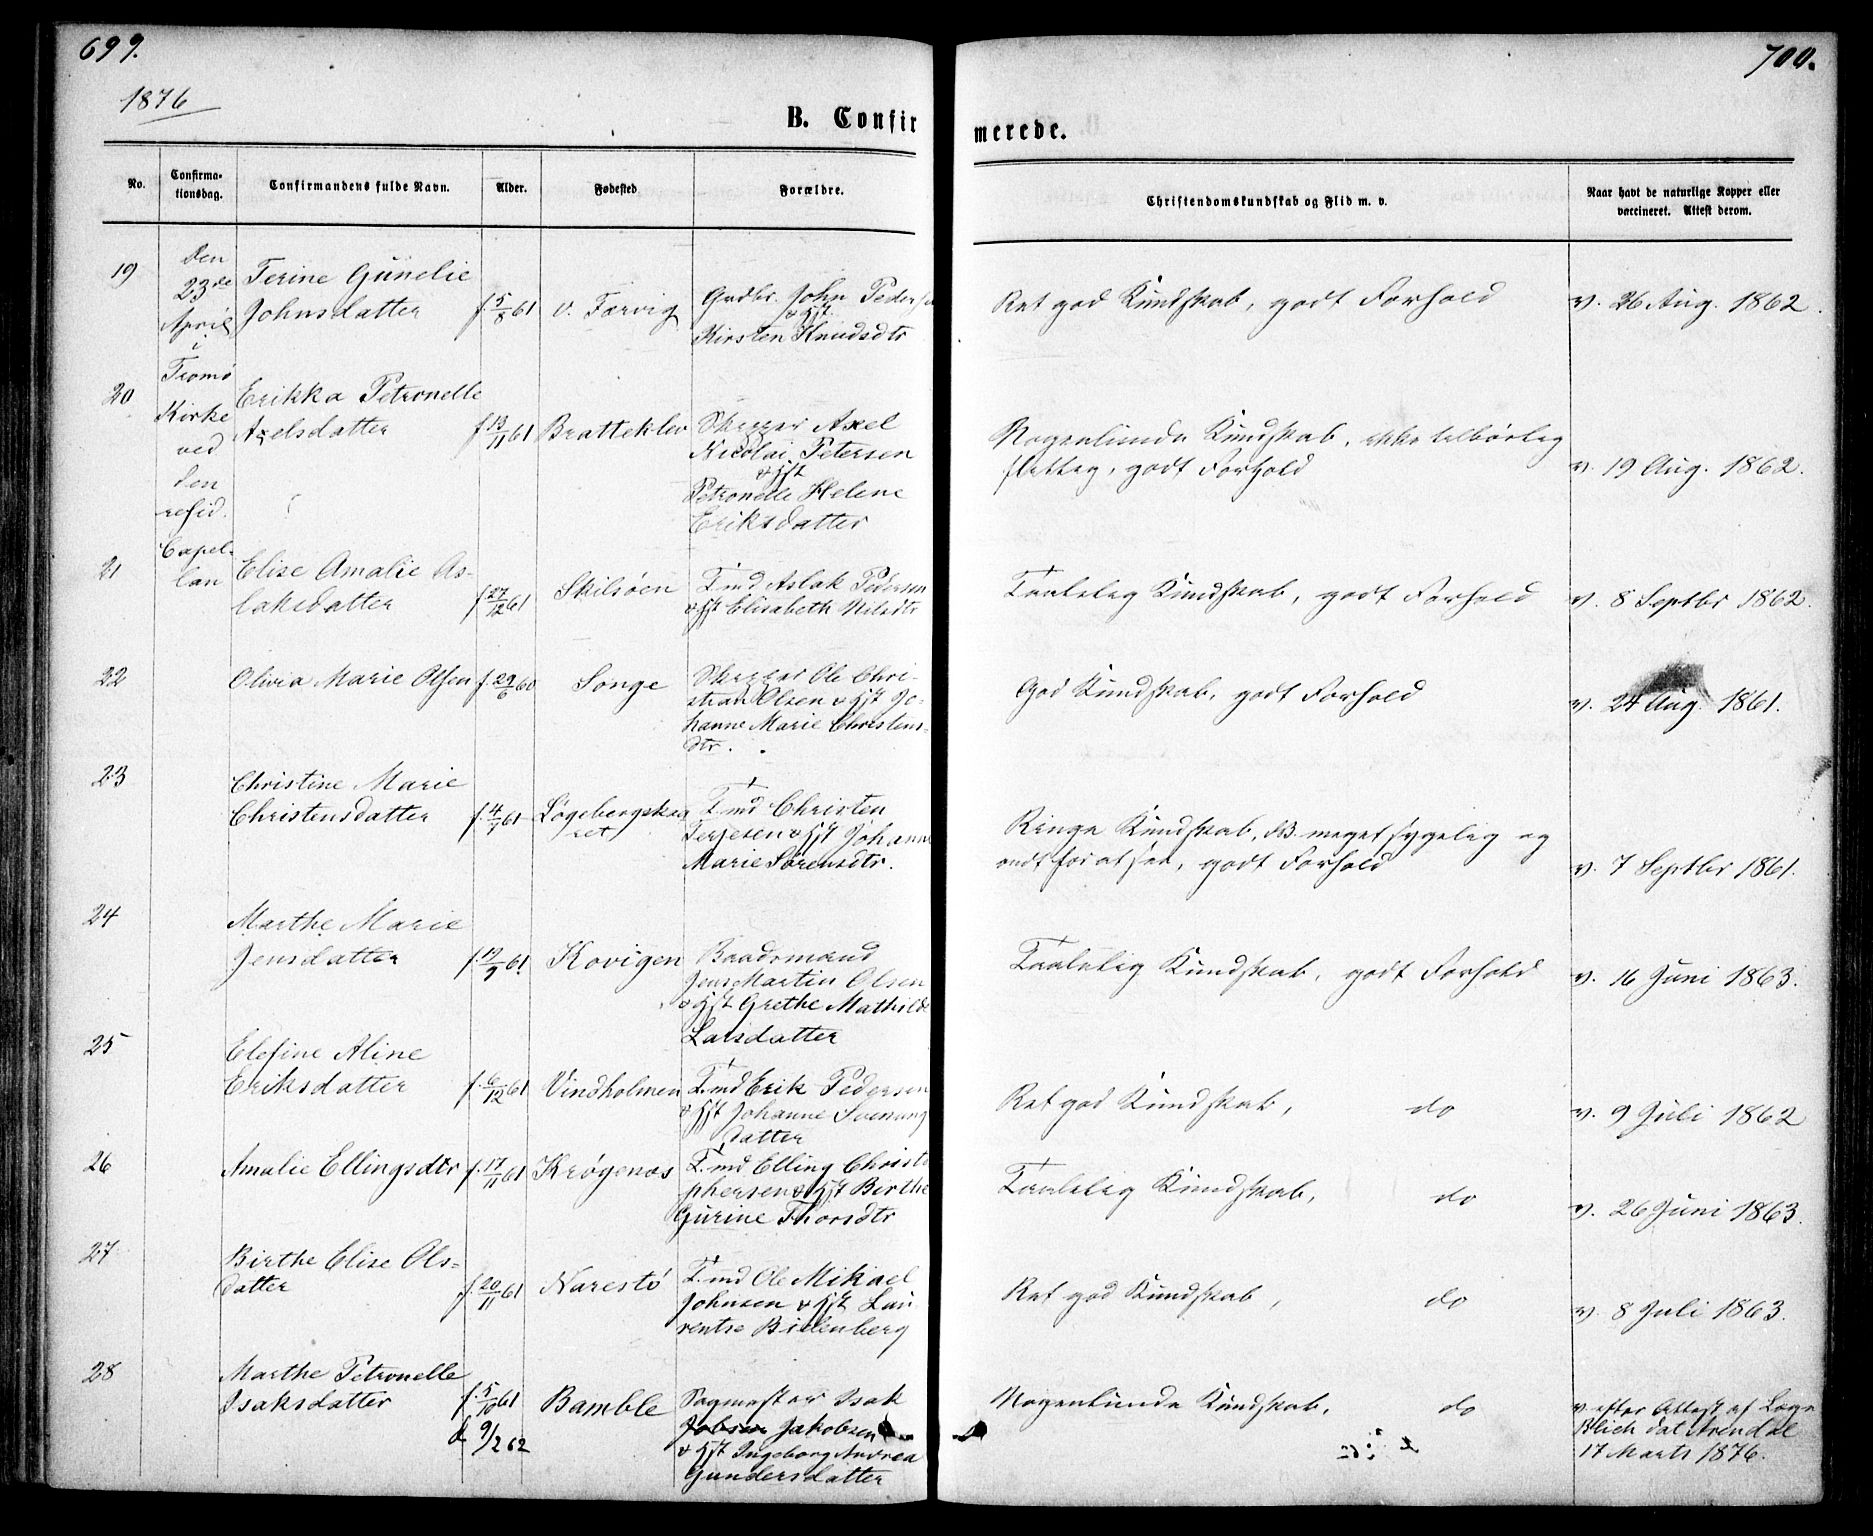 699.
700.
1876
B. Confirmerede.
No.
Confirmationsdag.
Confirmandens fulde Navn.
Alder.
Fødested
Forældre.
Christendomskundskab og Flid m. v.
Naar havt de naturlige Kopper eller
vaccineret. Attest derom.
Den
23de
April
i
Tromø
Kirke
ved
den
resid.
Capel-
lan
19
Terine Gunelie
Johnsdatter
f. 5/8 61
v. Færvig
Gudbr. John Pedersen
& Hst.
Kirsten Knudsdtr
Ret god Kundskab, godt Forhold
v. 26 Aug. 1862.
20
Erikka Petronelle
Axelsdatter
f 13/11 61
Bratteklev
Skipper Axel
Nicolai Petersen
& Hst
Petronelle Helene
Eriksdatter
Nogenlunde Kundskab, ikke tilbørlig
flittig, godt Forhold
v. 19 Aug. 1862.
21
Elise Amalie As-
laksdatter
f. 27/12 61
Skilsøen
T.md Aslak Pedersen
& Hst Elisabeth Nilsdtr
Taalelig Kundskab, godt Forhold
v. 8 Septbr 1862.
22
Olivia Marie Olsen
f. 29/6 60
Songe
Skipper Ole Chri-
stian Olsen & Hst Jo-
hanne Marie Christens-
dtr.
God Kundskab, godt Forhold
v. 24 Aug. 1861.
23
Christine Marie
Christensdatter
f. 4/7 61
Løgebergskær
ret
T.md Christen
Terjesen & Hst Johanne
Marie Sørensdtr.
Ringe Kundskab, NB meget sygelig og
ondt for at see, godt Forhold
v. 7 Septbr 1861.
24
Marthe Marie
Jensdatter
f. 19/9 61
Kovigen
Baadsmand
Jens Martin Olsen
& Hst Grethe Mathilde
Larsdatter
Taalelig Kundskab, godt Forhold
v. 16 Juni 1863.
25
Elefine Aline
Eriksdatter
f. 6/12 61
Vindholmen
T.md Erik Pedersen
& Hst Johanne Svenung
datter
Ret god Kundskab, do
v. 9 Juli 1862
26
Amalie Ellingsdtr
f. 17/11 61
Krøgenæs
T.md Elling Christo
phersen & Hst Birthe
Gurine Thorsdtr
Taalelig Kundskab, do
v. 26 Juni 1863.
27
Birthe Elise Ols-
datter
f. 20/11 61
Narestø
T.md Ole Mikael
Johnsen & Hst Lau
rentse Bielenberg
Ret god Kundskab, do
v. 8 Juli 1863.
28
Marthe Petronelle
Isaksdatter
f. 5/10 61
d 9/2 62
Bamble
Sagmester Isak
Jobsen Jakobsen
& Hst Ingeborg Andrea
Gundersdatter
Nogenlunde Kundskab, do
v. efter Attest af Læge
Blich dat Arendal
17 Marts 1876.